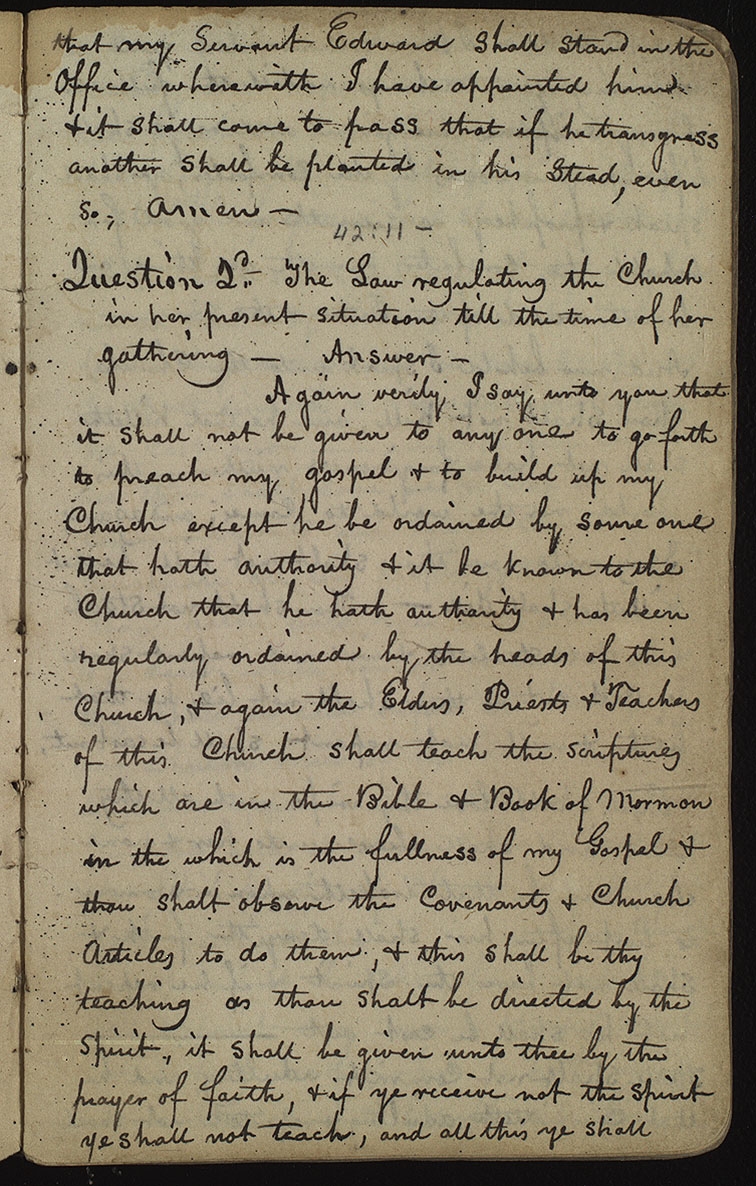 that my Servant Edward shall stand in the
Office wherewith I have appointed him
& it shall come to pass that if he transgress
another shall be planted in his Stead, even
so, Amen —
42:11 —
Question 2d. The Law regulating the Church
in her present situation till the time of her
gathering — Answer —
Again verily I say unto you that
it shall not be given to any one to go forth
to preach my gospel & to build up my
Church except he be ordained by some one
that hath authority & it be known to the
Church that he hath authority & has been
regularly ordained by the heads of this
Church, & again the Elders, Priests & Teachers
of this Church shall teach the scriptures
which are in the Bible & Book of Mormon
in the which is the fullness of my Gospel &
thou shalt observe the Covenants & Church
Articles to do them, & this shall be thy
teaching as thou shalt be directed by the
Spirit, it shall be given unto thee by the
prayer of faith, & if ye receive not the spirit
ye shall not teach, and all this ye shall